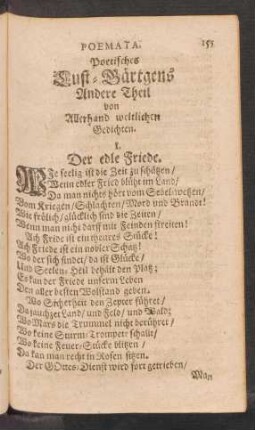 POEMATA. 155
Poetisches
Lust-Gärtgens
Andere Theil
von
Allerhand weltlichen
Gedichten.
I.
Der edle Friede.
WJe seelig ist die Zeit zu schätzen/
Wenn edler Fried blüht im Land/
Da man nichts hört vom Sebel-wetzen/
Vom Kriegen/ Schlachten/ Mord und Brandt!
Wie frölich/ glücklich sind die Zeiten/
Wenn man nicht darff mit Feinden streiten!
Ach Fride ist ein theures Stücke!
Ach Friede ist ein nobler Schatz!
Wo der sich findet/ da ist Glücke/
Und Seelen-Heil behält den Platz;
Es kan der Friede unserm Leben
Den aller besten Wolstand geben.
Wo Sicherheit den Zepter führet/
Da jauchzet Land/ und Feld/ und Wald;
Wo Mars die Trummel nicht berühret/
Wo keine Sturm-Trompet schallt/
Wo keine Feuer-Stücke blitzen/
Da kan man recht in Rosen sitzen.
Der GOttes-Dienst wird fort getrieben/
Man